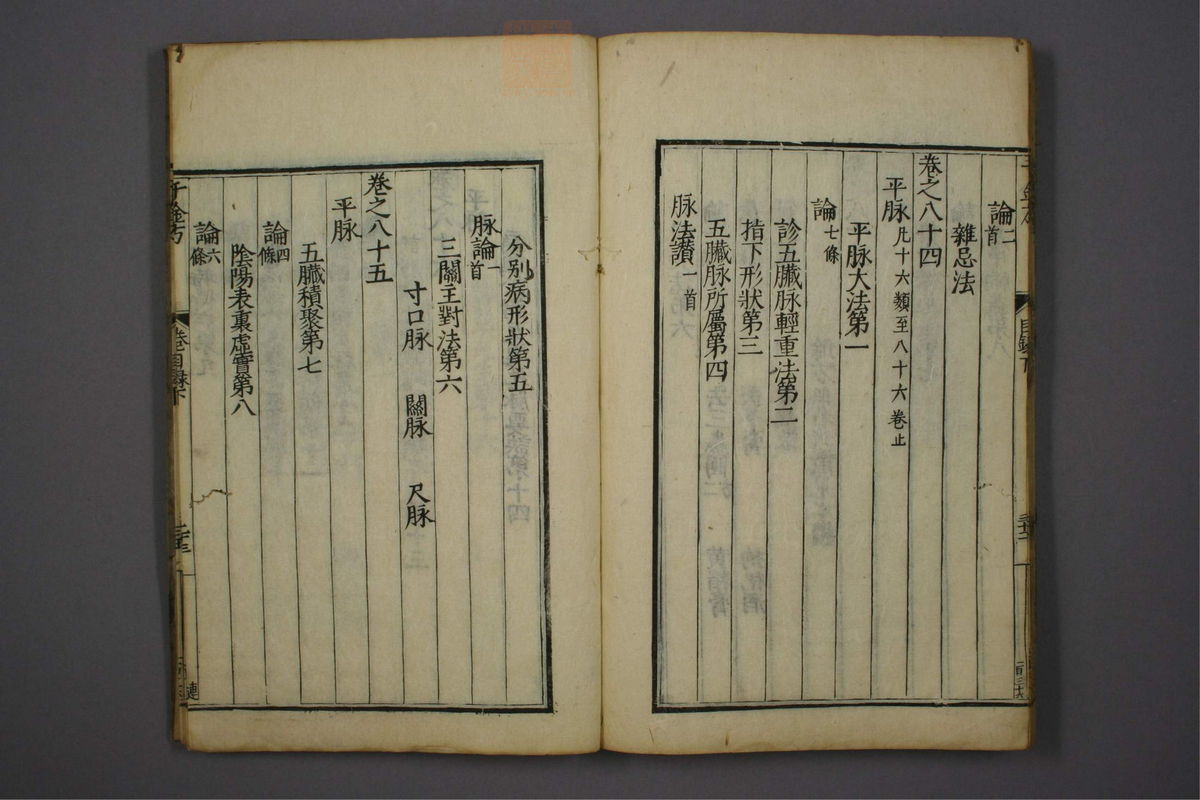 論二首
雜忌法
卷之八十四
平脉凡十六類至八十六卷止
平脉大法第一
論七條
診五臟脉輕重法第二
指下形狀第三
五臟脉所屬第四
脉法讚一首
分别病形狀第五
脉論一首
三關主對法第六
寸口脉 關脉 尺脉
卷之八十五
平脉
五臟積聚第七
論四條
陰陽表裏虛實第八
論六條
千金方
卷目錄下